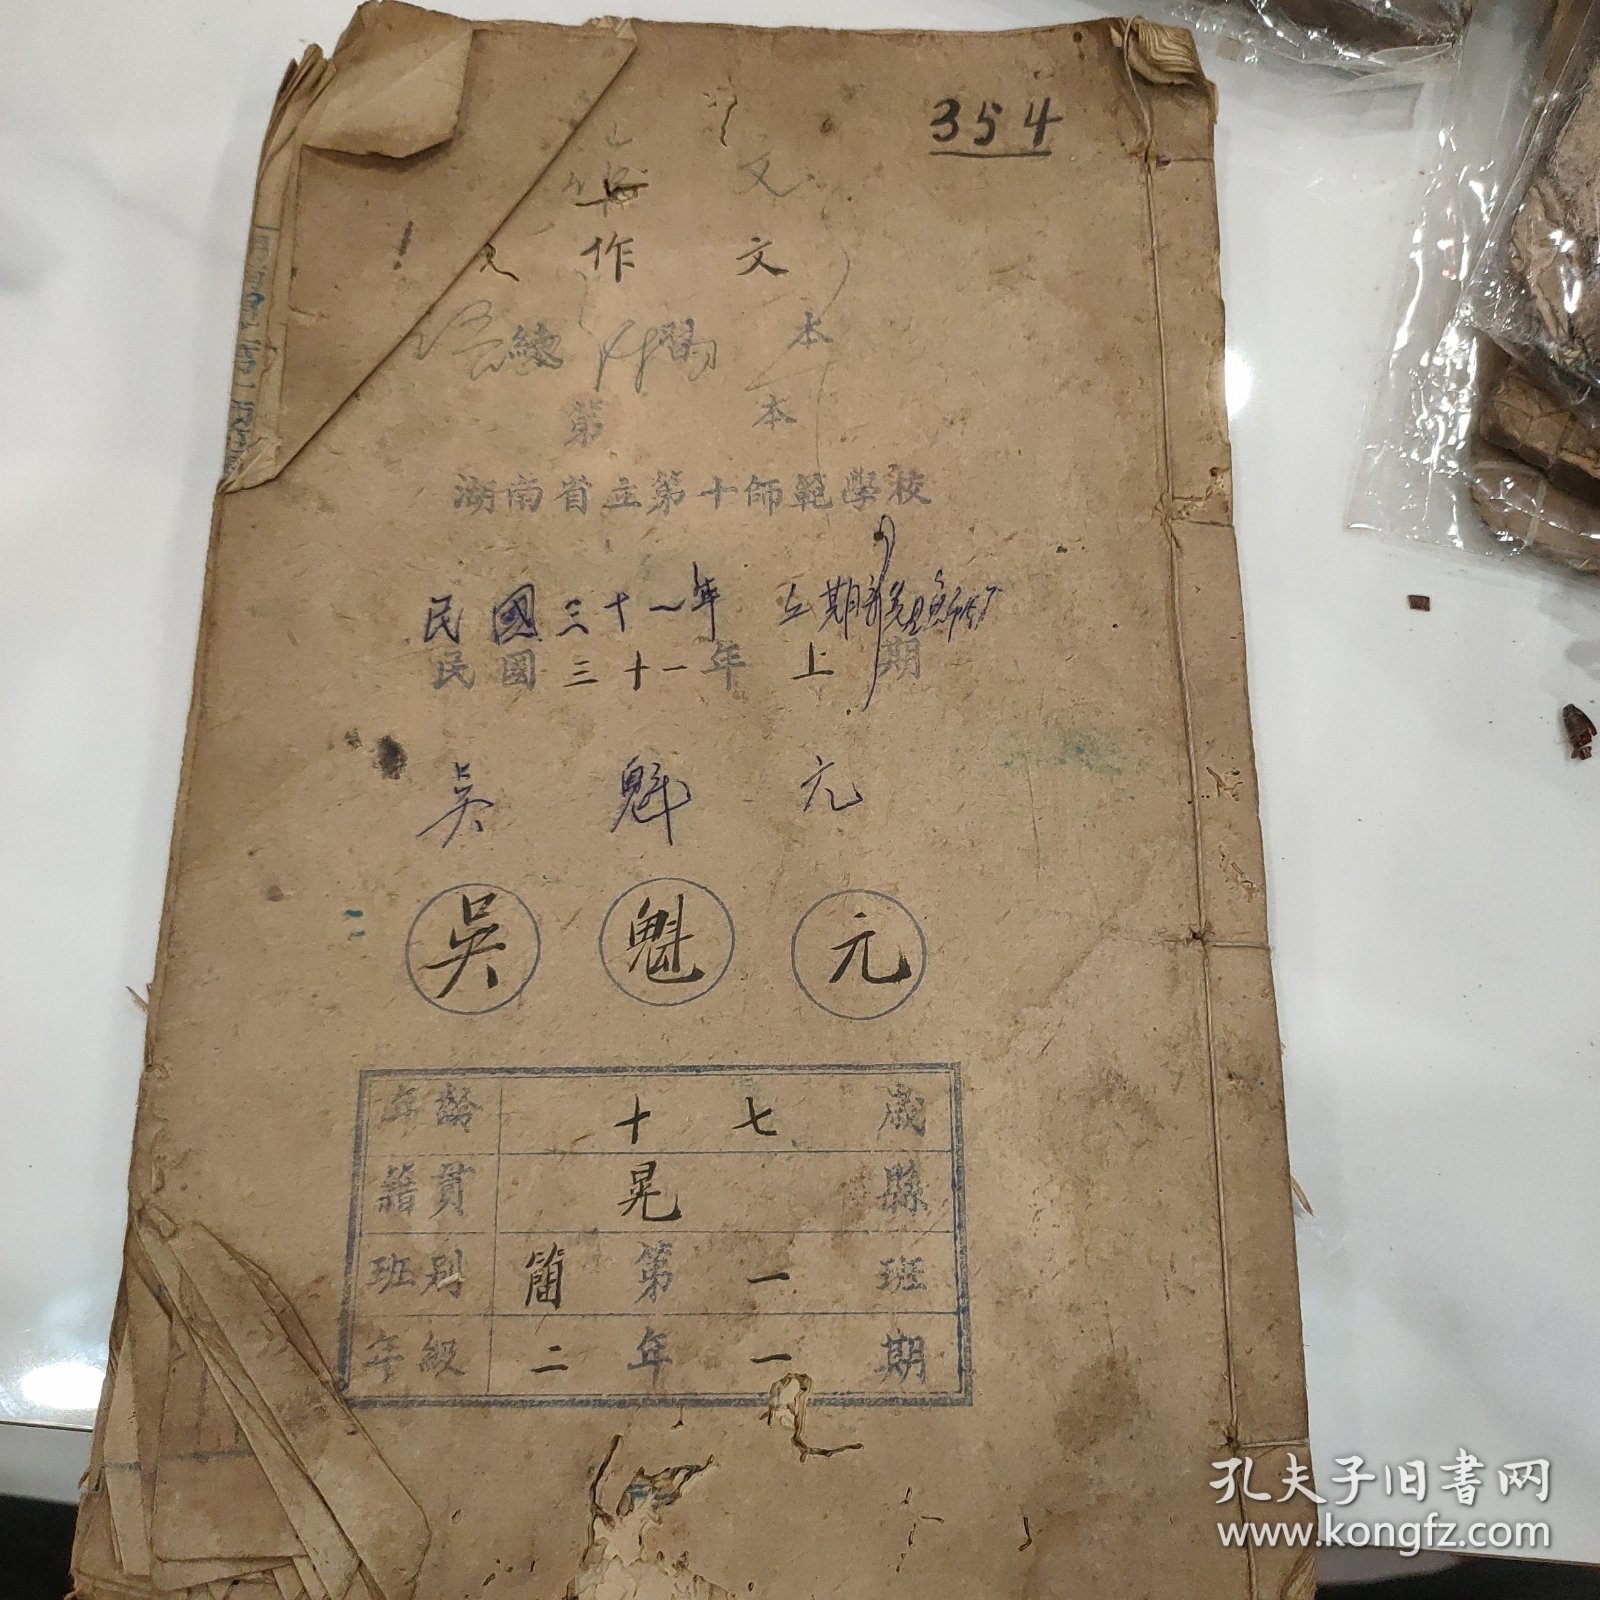 354
文
作 文
練習 本
第 本
湖南省立第十師範學校
民國三十一年 上期
民國三十一年 上 期
吳 魁 元
吳 魁 元
年齡 十七 歲
籍貫 晃 縣
班别 簡 第 一 班
年級 二 年 一 期
孔夫子旧书网
www.kongfz.com